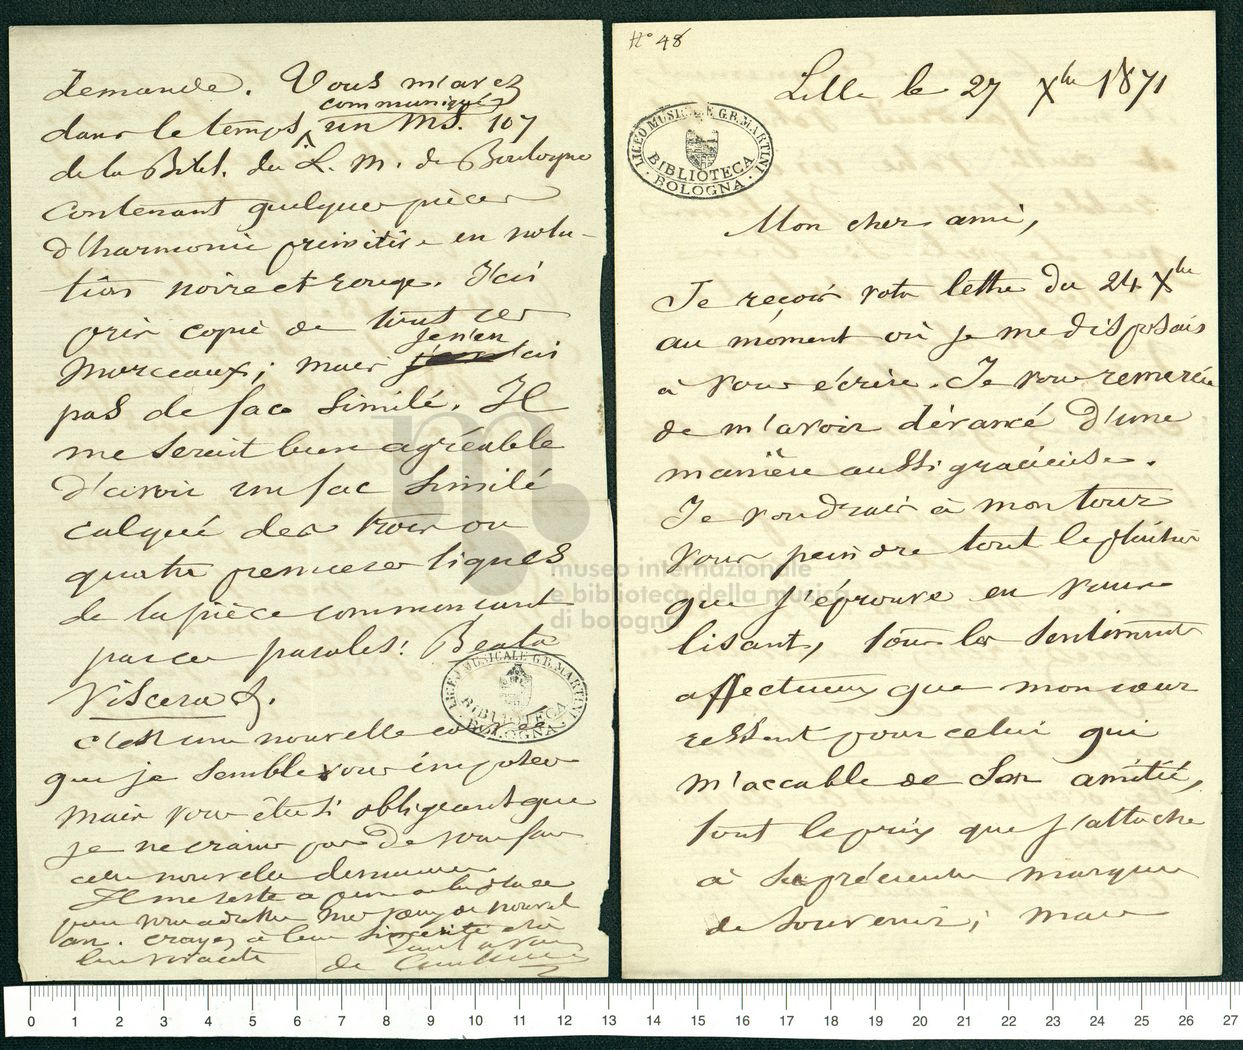 demande. Vous m'avez
communiqué
dans le temps un MS. 107
de la Bibl. du L. M. de Boulogne
contenant quelques pièces
d'harmonie primitive en nota-
tion noire et rouge. J'ai
pris copie de tout ces
je n'en
morceaux; mais ai
pas de fac similé. Il
me serait bien agréable
d'avoir un fac similé
calqué des trois ou
quatre premieres lignes
de la pièce commençant
par ces paroles: Beata
Viscera &.
c'est une nouvelle corvée
que je semble vous imposer
mais vous êtes si obligeant que
je ne crains pas de vous faire
cette nouvelle demande.
Il me reste a peine de la place
pour vous adresser mes voeux de nouvel
an. Croyez à leur sincérité et à
leur vivacité
de Coussemaker
N° 48
Lille le 27 Xbre 1871
LICEO MUSICALE G.B. MARTINI
BIBLIOTECA
BOLOGNA
Mon cher ami,
Je reçois votre lettre du 24 Xbre
au moment où je me disposais
à vous écrire. Je vous remercie
de m'avoir dévancé d'une
manière aussi gracieuse.
Je voudrais à mon tour
vous peindre tout le plaisir
que j'éprouve en vous
lisant, tous les sentiments
affectueux que mon coeur
ressent pour celui qui
m'accable de son amitié,
tout le prix que j'attache
à sa précieuse marque
de souvenir; mais
LICEO MUSICALE G.B. MARTINI
BIBLIOTECA
BOLOGNA
museo internazionale
e biblioteca della musica
di bologna
0 1 2 3 4 5 6 7 8 9 10 11 12 13 14 15 16 17 18 19 20 21 22 23 24 25 26 27